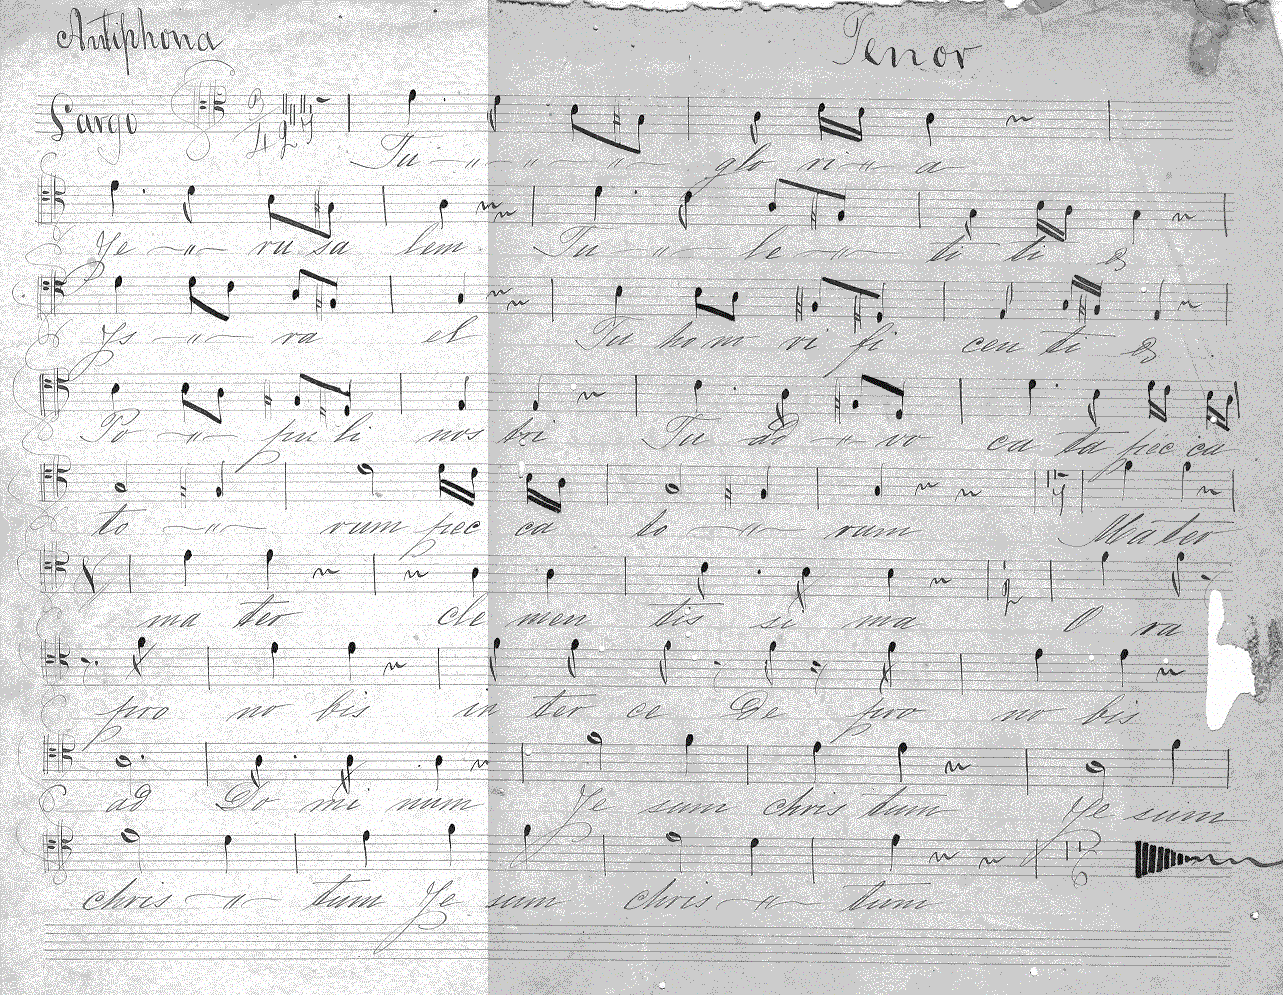 Antiphona Tenor
Largo 3/4
Tu glo ri a
Je ru sa lem Tu le ti ti
Js ra el Tu hom ri fi cen ti
Po pu li nos tri Tu ad vo ca ta pec ca
to rum pec ca to rum Mater
ma ter cle men tis si ma O ra
pro no bis in ter ce De pro no bis
ad Do mi num Je sum chris tum Je sum
chris tum Je sum chris tum